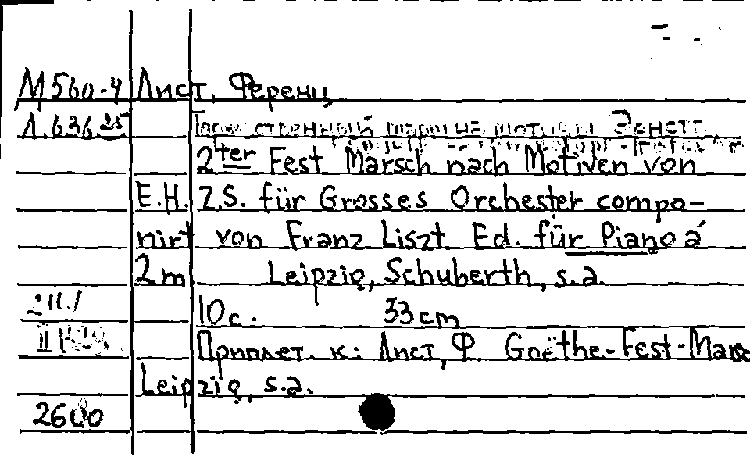 М560-4 Лист, Ференц
Л.636 25 Торжественный марш на мотивы
2ter Fest Marsch nach Motiven von
E.H. Z.S. für Grosses Orchester compo-
nirt von Franz Liszt. Ed. für Piano á
2 m Leipzig, Schuberth, s.a.
10 c. 33 cm
Приплет. к: Лист, Ф. Goëthe-Fest-Mars
Leipzig, s.a.
2600